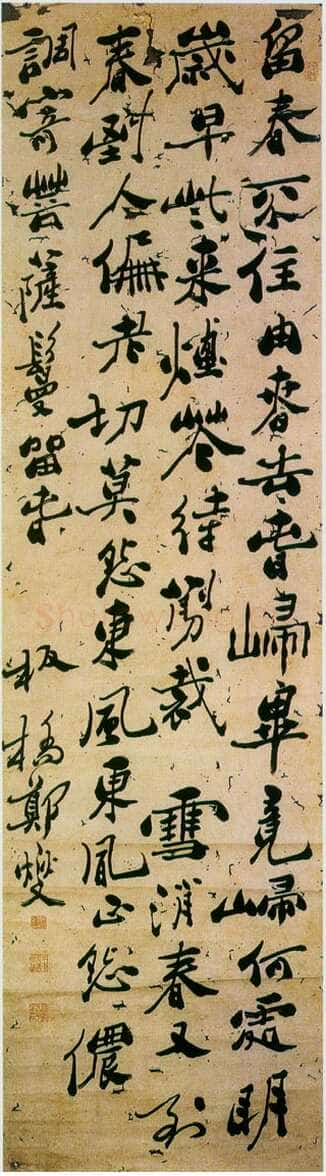 留春不住由春去春歸畢竟歸何處明
歲早些來煙花待剪裁 雪消春又到
春到人偏老切莫怨東風東風正怨儂
調寄菩薩鬘留春 板橋鄭燮